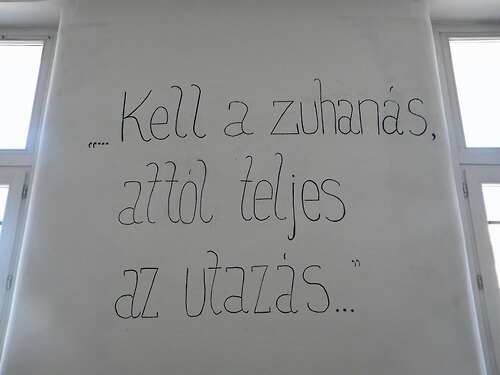 „...Kell a zuhanás,
attól teljes
az utazás...”